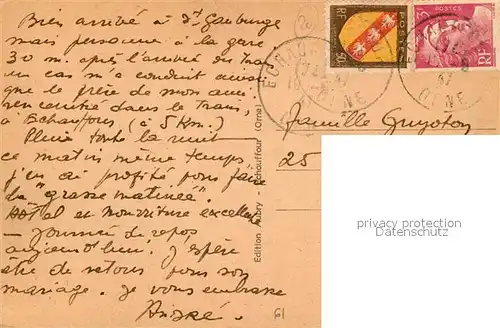 Bien arrivé à St Gauburge
mais personne à la gare
30 m. après l'arrivée du train
un car m'a conduit ainsi
que le frère de mon ami
rencontré dans le train,
à Echauffour (à 5 Km.)
Pluie toute la nuit
ce matin même temps,
j'en ai profité pour faire
la "grasse matinée".
Hôtel et nourriture excellente
Journée de repos
aujourd'hui. J'espère
être de retour pour son
mariage. Je vous embrasse
André.
Edition Aubry - Echauffour (Orne)
RF
POSTES
POSTES
3F
RF
ORNE
ORNE
Famille Guyoton
25
privacy protection
Datenschutz
61